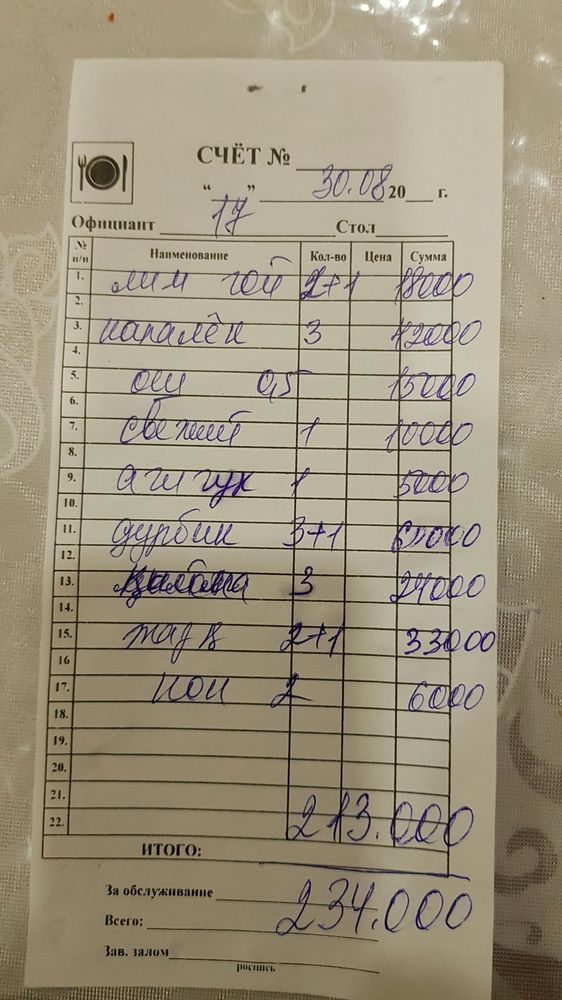 СЧЁТ № ______
“ ” 30.08 20 г.
Официант 17 Стол
№ п/п Наименование Кол-во Цена Сумма
1. лим чой 2+1 18000
2.
3. каралёк 3 42000
4.
5. ош 0,5 15000
6.
7. свежий 1 10000
8.
9. ачичук 1 5000
10.
11. дурбин 3+1 60000
12.
13. 3 24000
14.
15. 2+1 33000
16
17. нон 2 6000
18.
19.
20.
21.
22. 213.000
ИТОГО:
За обслуживание
Всего: 234.000
Зав. залом
роспись